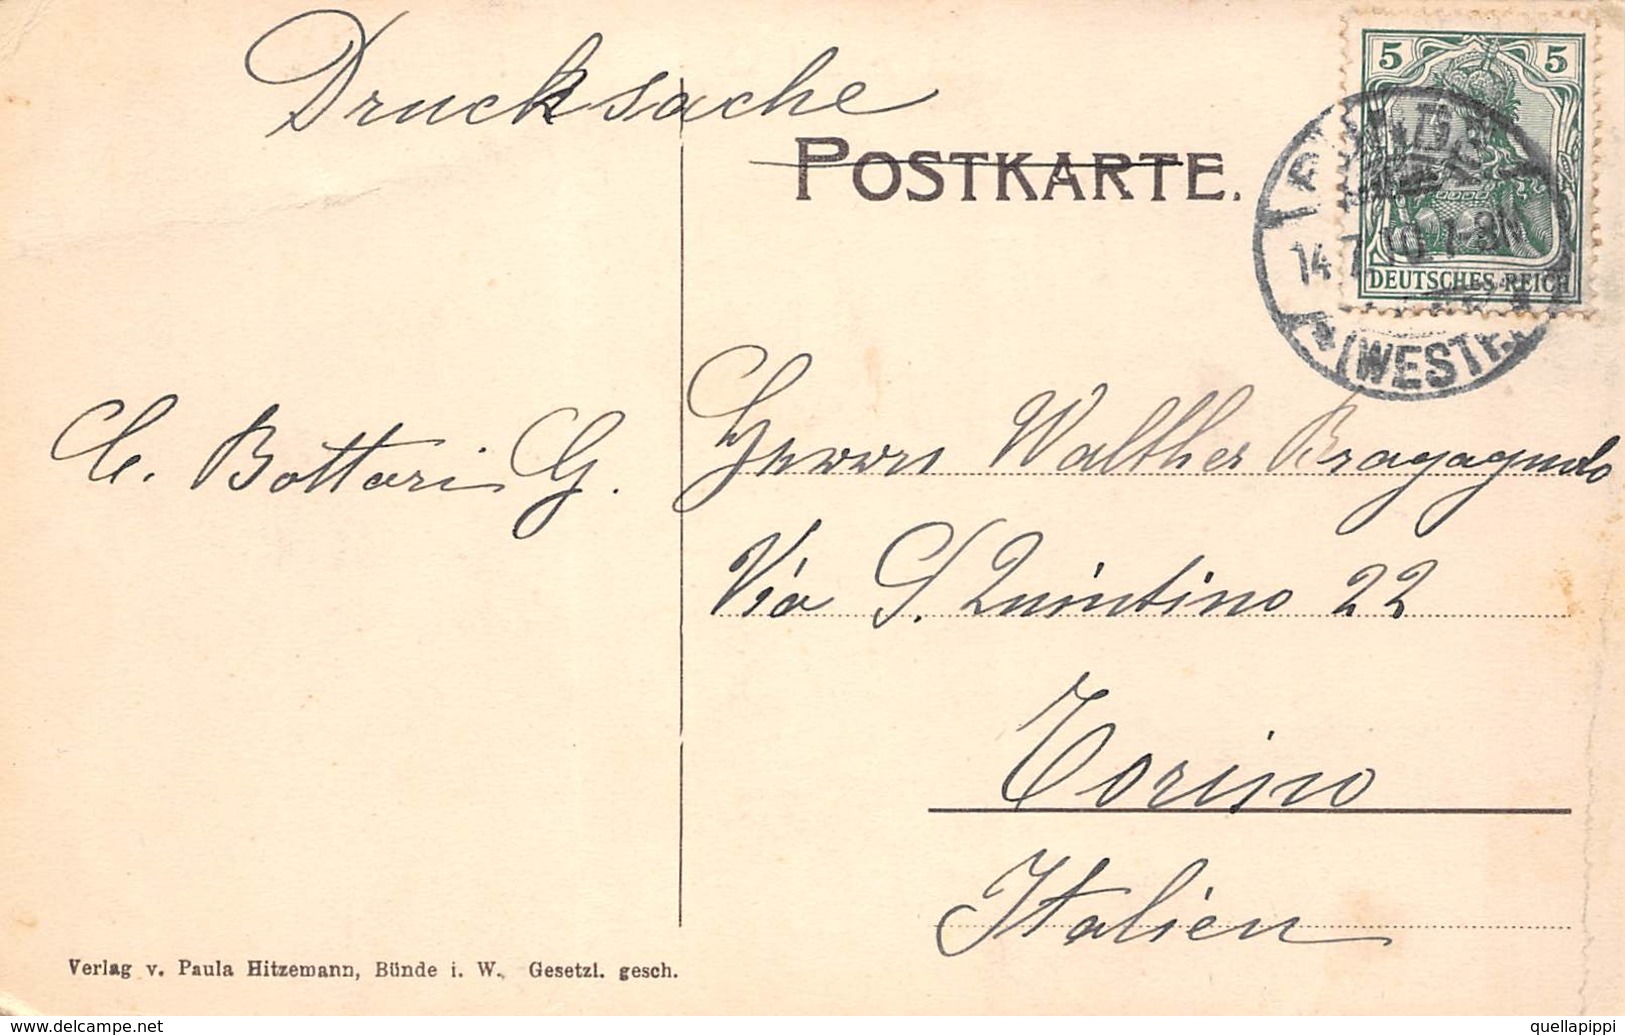 Drucksache
POSTKARTE.
5 5
DEUTSCHES REICH
14.7.10.7-8N
(WESTF.
C. Bottari G.
Herrn Walther Bragagnolo
Via S. Quintino 22
Torino
Italien
Verlag v. Paula Hitzemann, Bünde i. W. Gesetzl. gesch.
www.delcampe.net
quellapippi